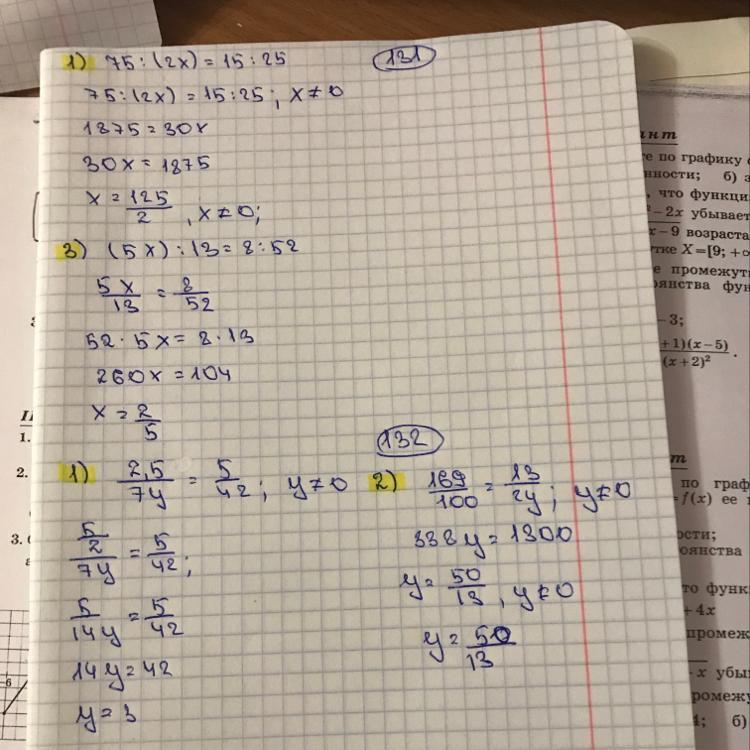 131
1) 75:(2x)=15:25
75:(2x)=15:25; x≠0
1875=30x
30x=1875
x=125/2, x≠0;
3) (5x):13=8:52
5x/13=8/52
52·5x=8·13
260x=104
x=2/5
132
1) 2,5/7y=5/42; y≠0
5/2/7y=5/42;
5/14y=5/42
14y=42
y=3
2) 169/100=13/2y; y≠0
338y=1300
y=50/13, y≠0
y=50/13
е по графику
нности; б)
, что функци
-2x убывает
x-9 возраста
тке X=[9; +∞
е промежут
-3;
+1)(x-5)
(x+2)²
по граф
=f(x) ее
ости;
оянства
то функ
+4x
промеж
-x убы
ромежу
4; б)
1.
2.
3.
-6